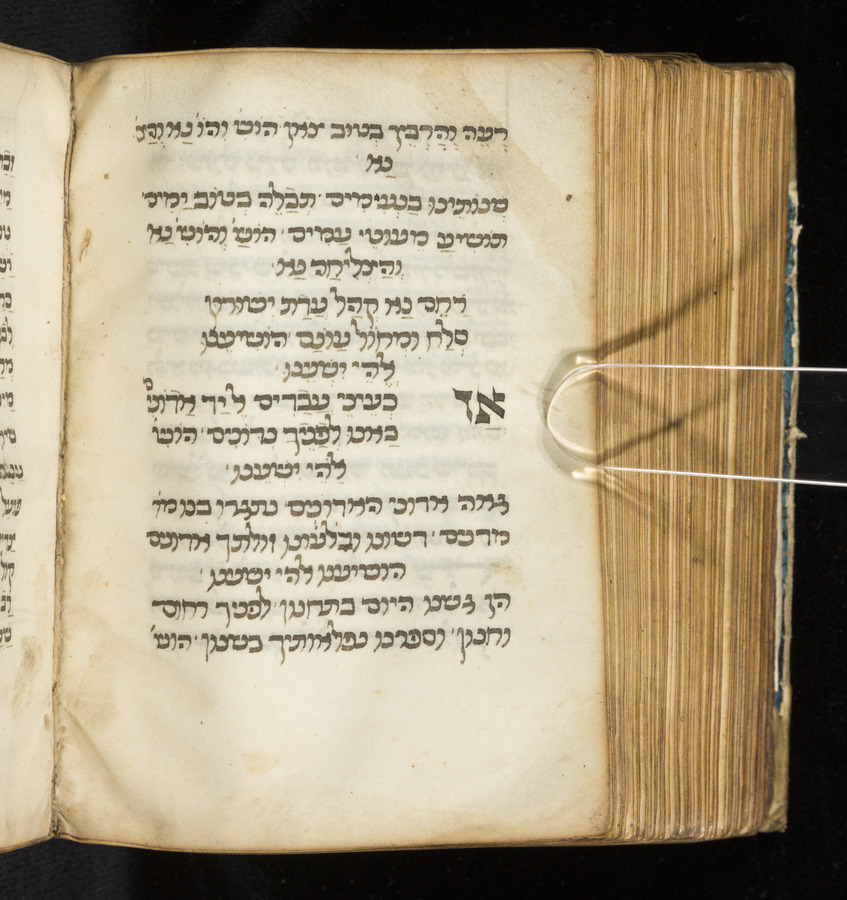 רעה והרבץ בטוב צאן הוש' והו' נא והצ'
נא
שנותינו בנעימים תכלה בטוב ימים
תושיע מעוטי עמים הוש' והוש' נא
והצליחה נא
רחם נא קהל עדת ישורון
סלח ומחול עונם הושיענו
אלהי ישענו
אז כעיני עבדים אל יד אדונים
באנו לפניך נדונים הוש'
אלהי ישענו
גאה אדוני האדונים נתגרו בנו מד
מדנים דשונו ובלעונו זולתך אדונים
הושיענו אלהי ישענו
הן גשנו היום בתחנון לפניך רחום
וחנון וספרנו נפלאותיך בשנון הוש'